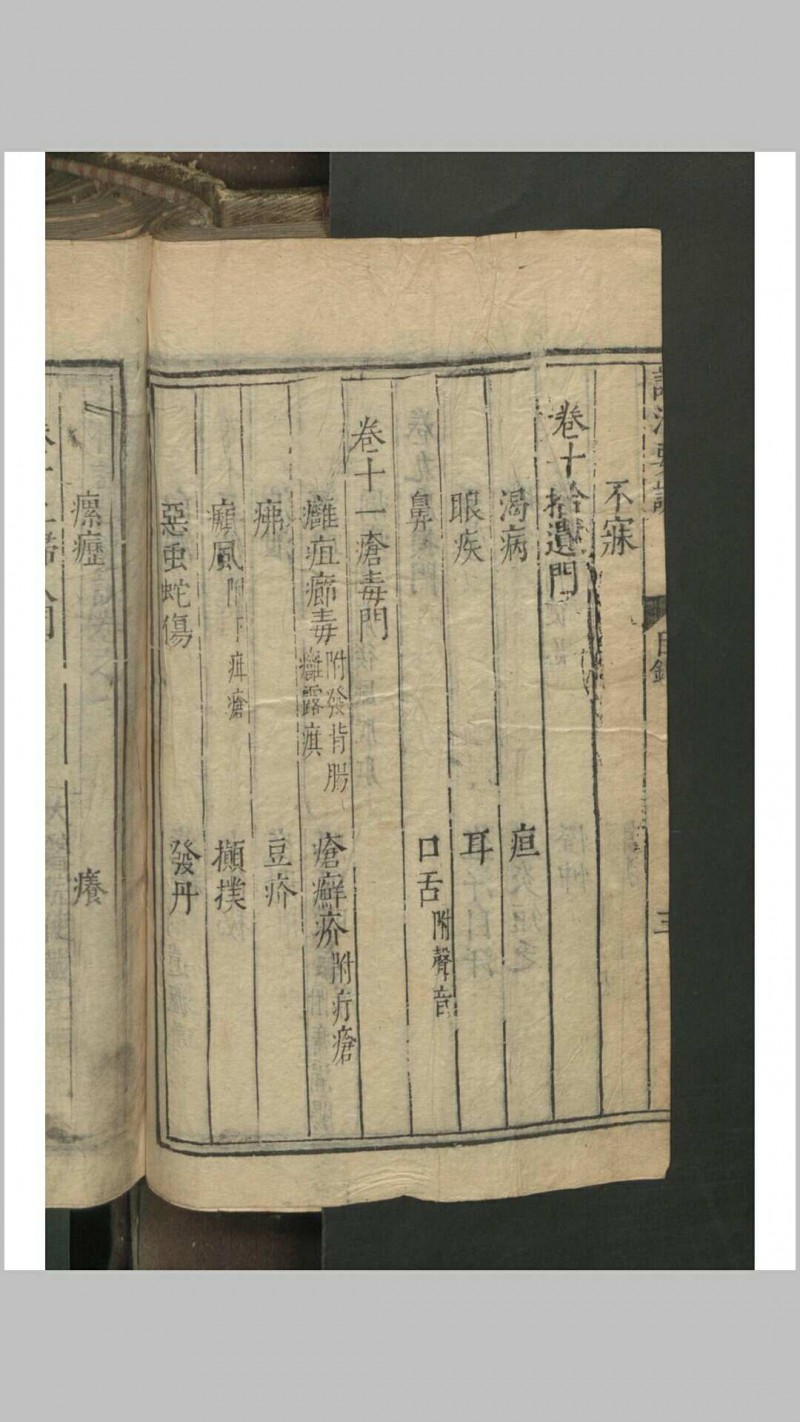 目錄
三
不寐
卷十拾遺門
渴病 疸
眼疾 耳
鼻 口舌附聲音
卷十一瘡毒門
癰疽癤毒附發背腸癰露㾗 瘡癬疥附疔瘡
疿 豆疥
癜風附下疰瘡 攧撲
惡虫蛇傷 發丹
瘰癧 癢